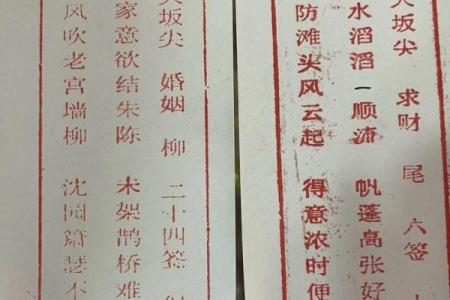 坂尖 求财 尾 六签
水滔滔一顺流 帆蓬高张好
防滩头风云起 得意浓时便
坂尖 婚姻 柳 二十四签
家意欲结朱陈 未架鹊桥难
风吹老宫墙柳 沈园萧瑟不